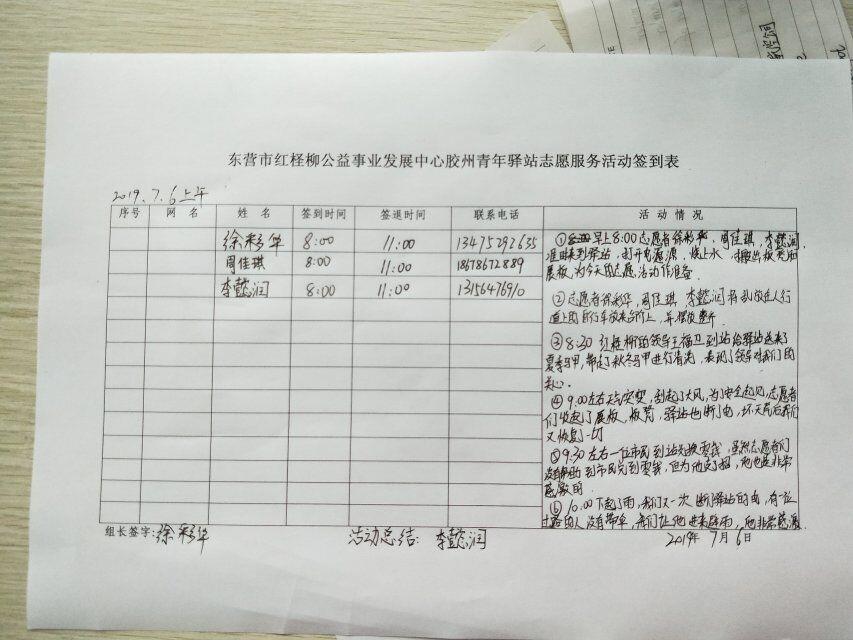 东营市红柽柳公益事业发展中心胶州青年驿站志愿服务活动签到表
2019.7.6上午
序号 网名 姓名 签到时间 签退时间 联系电话 活动情况
徐彩华 8:00 11:00 13475292635
周佳琪 8:00 11:00 18678672889
李懿润 8:00 11:00
①早上8:00志愿者徐彩华、周佳琪、李懿润
准时来到驿站，打开电源，烧上水，搬出板凳和
展板，为今天的志愿活动作准备.
②志愿者徐彩华，周佳琪 李懿润将乱放在人行
道上的自行车放来台阶上，并摆放整齐.
③8:30 红柽柳的领导王福卫到站给驿站送来了
夏季马甲，带走了秋冬马甲进行清洗，表现了领导对我们的
关心.
④9:00左右天气突变，刮起了大风，为了安全起见，志愿者
们收起了展板，板凳，驿站也断了电，坏天气后我们
又恢复了一切
⑤9:30左右一位市民到站兑换零钱，虽然志愿者们
没有帮到市民兑到零钱，但为他支了招，他也是非常
感激的.
⑥10:00下起了雨，我们又一次断驿站的电，有一位
过路的人没有带伞，我们让他进来避雨，他非常感激.
组长签字:徐彩华 活动总结:李懿润 2019年 7月 6日